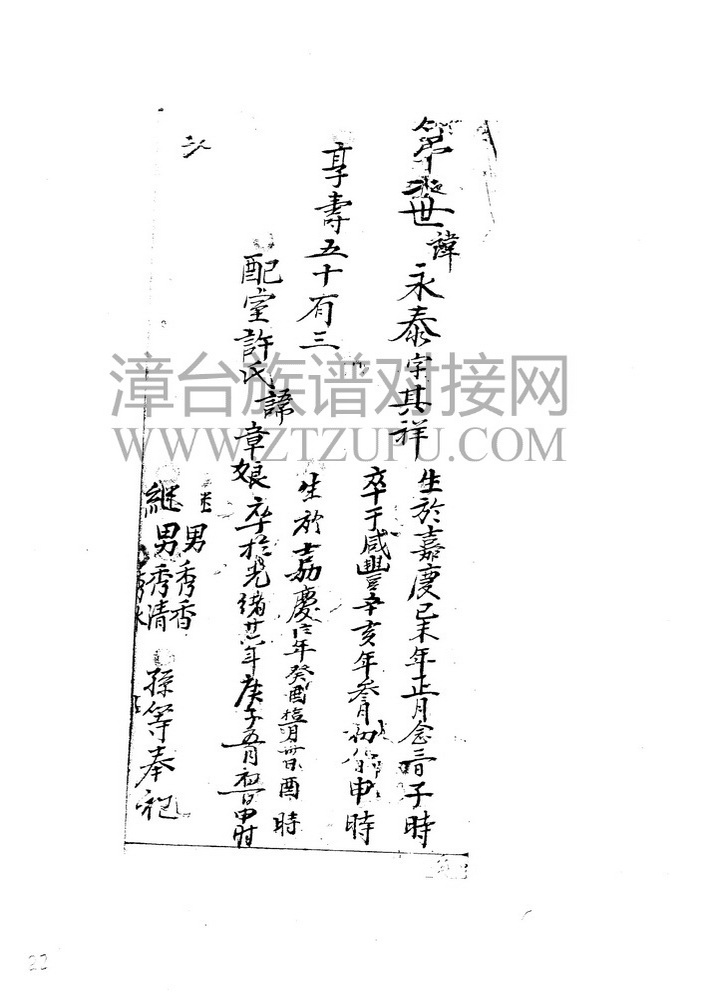 世 諱 永泰 字其祥 生於嘉慶己未年正月念 子時
卒于咸豐辛亥年叁月初 申時
享壽五十有三
生於嘉慶 年癸酉 月 酉時
配室許氏諱章娘 卒於光緒廿 年庚子五月初 申时
男秀香
継男秀清 孫等奉祀
漳台族谱对接网
WWW.ZTZUPU.COM
22